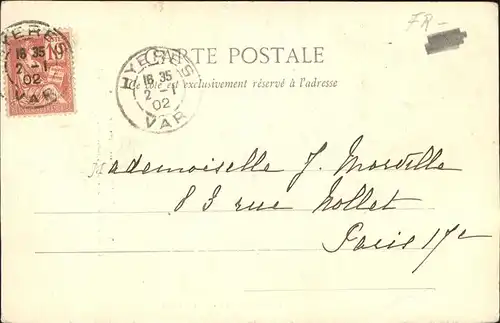 FR-
CARTE POSTALE
Ce côté est exclusivement réservé à l'adresse
HYERES
16 35
2 - 1
02
VAR
HYERES
16 35
2 - 1
02
VAR
10
Mademoiselle J. Morville
83 rue Nollet
Paris 17e